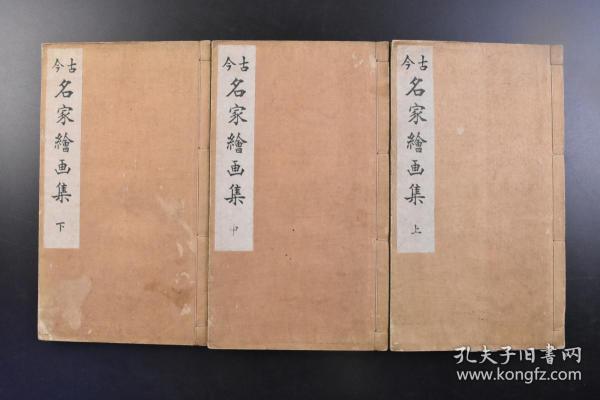 古今
名家繪画集
上
古今
名家繪画集
中
古今
名家繪画集
下
孔夫子旧书网
www.kongfz.com